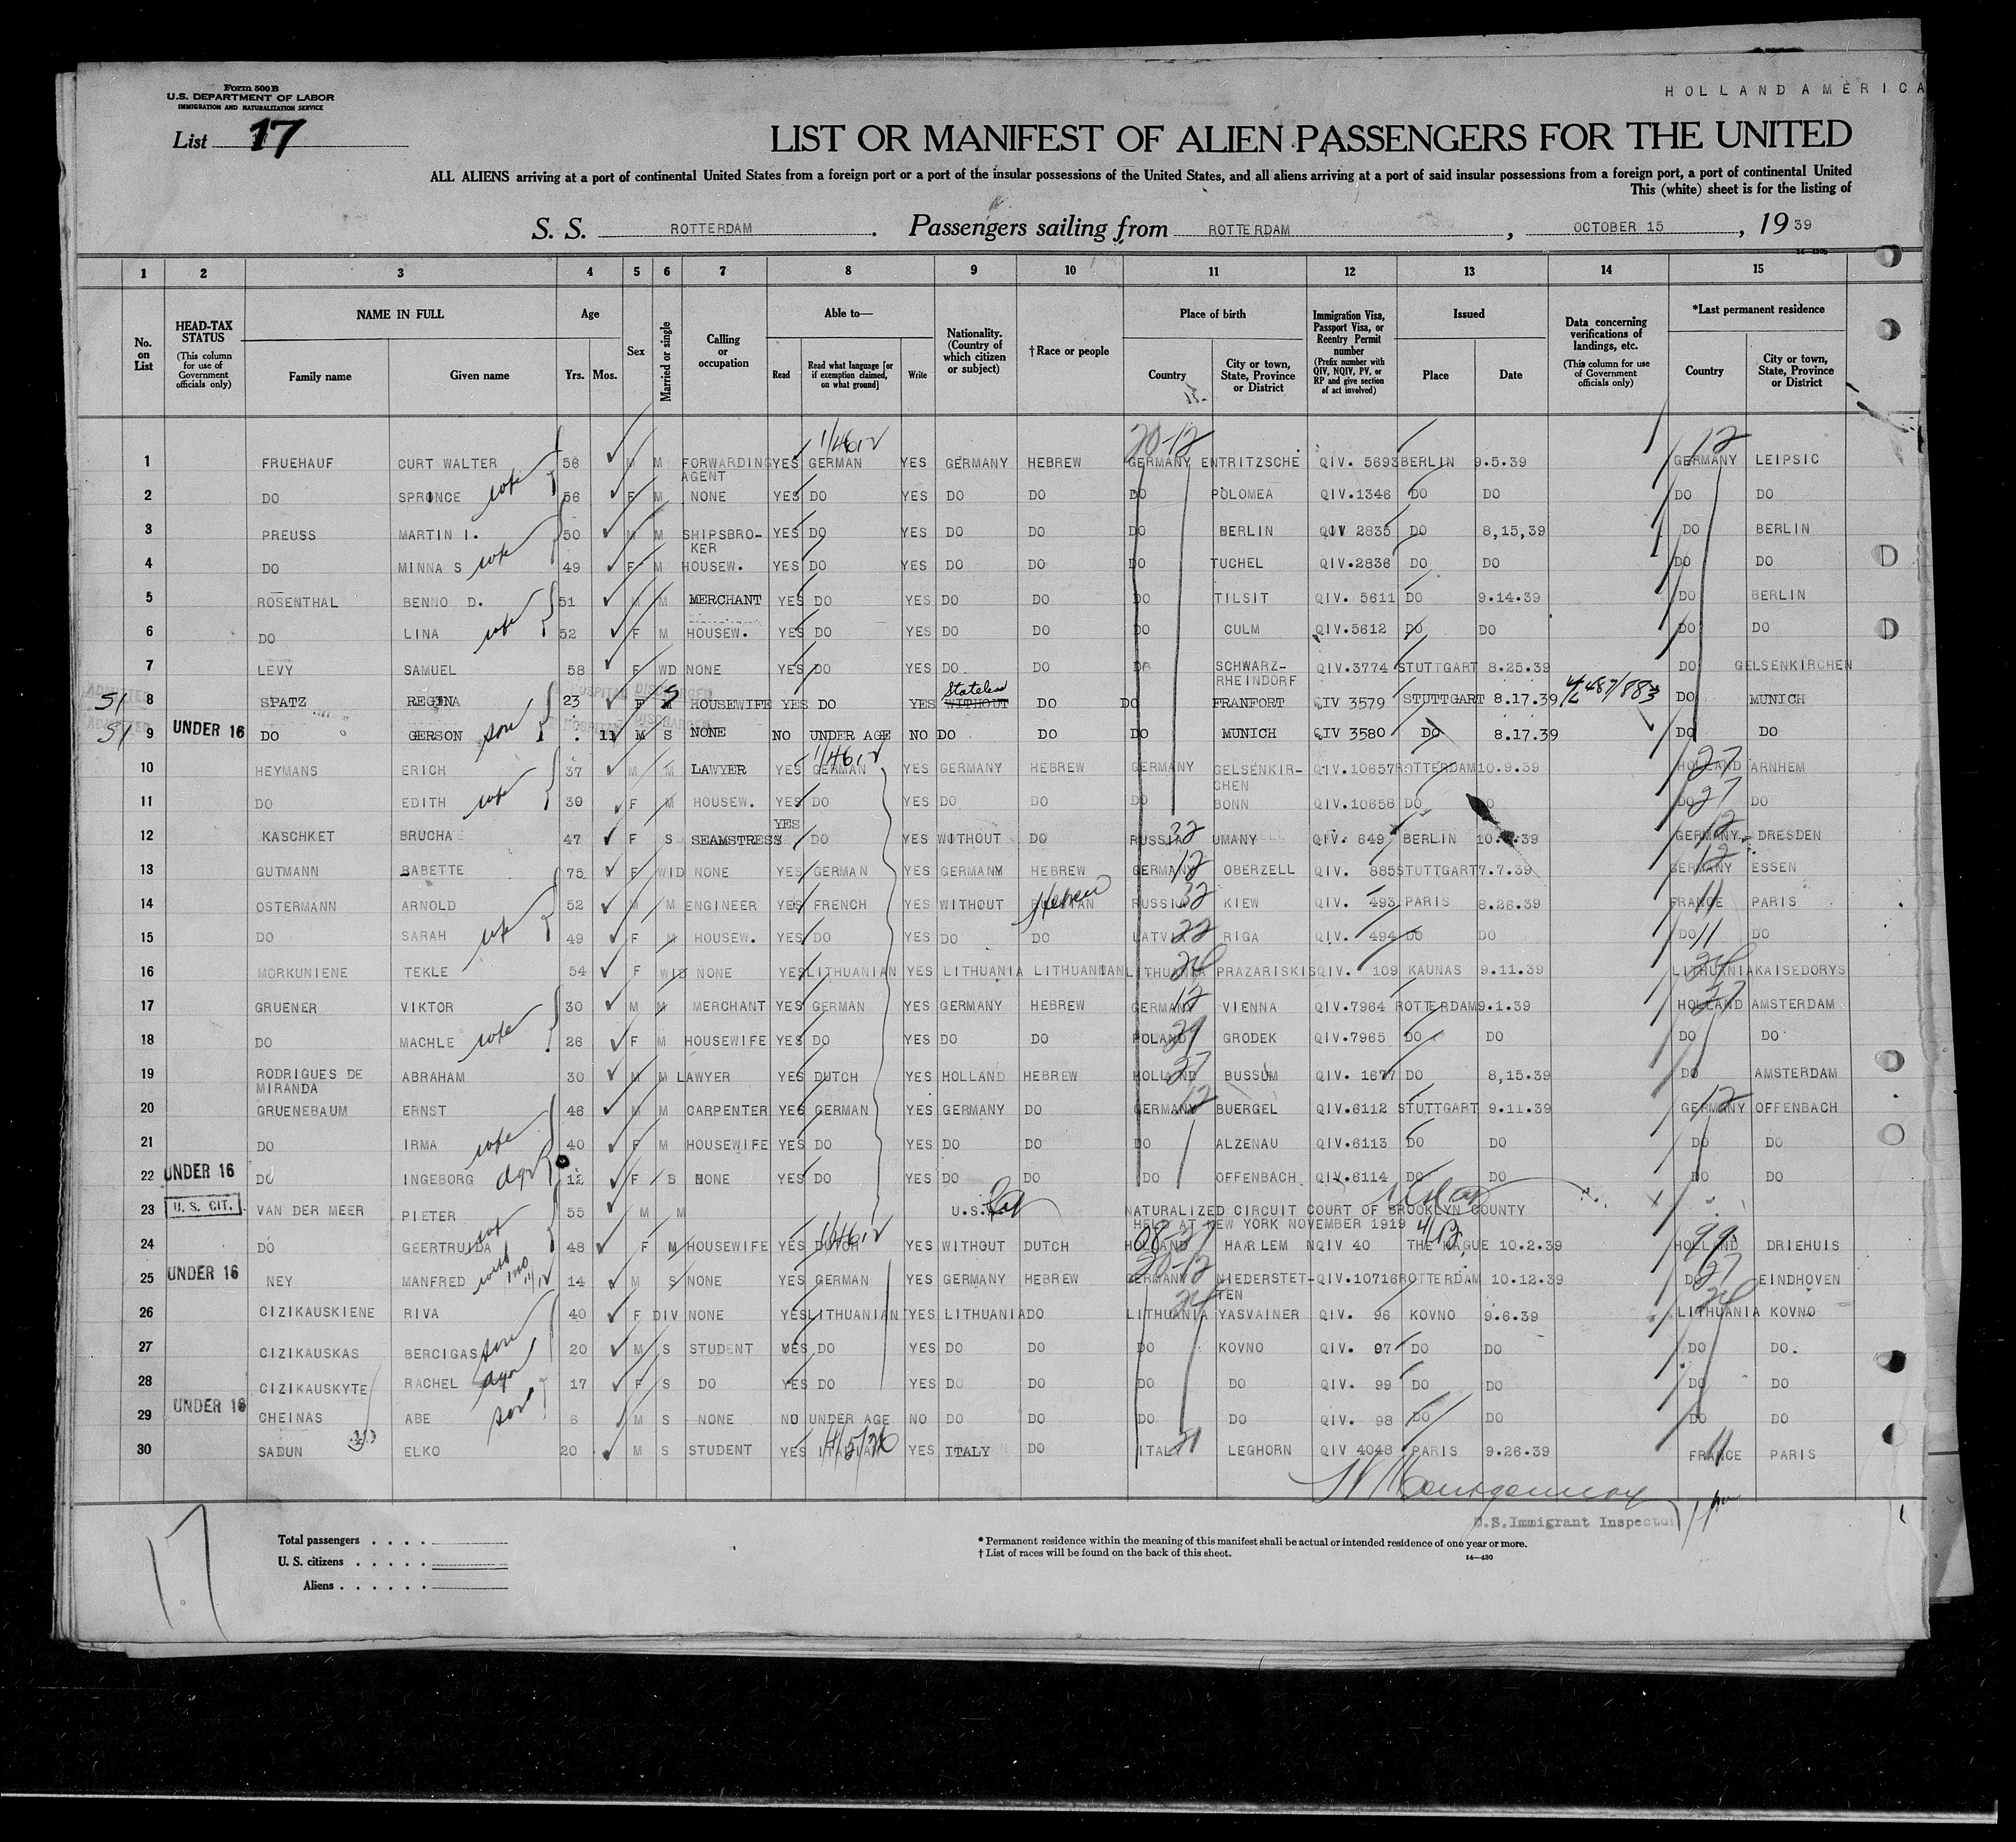 Form 500 B
U.S. DEPARTMENT OF LABOR
IMMIGRATION AND NATURALIZATION SERVICE
HOLLAND AMERICA
List 17
LIST OR MANIFEST OF ALIEN PASSENGERS FOR THE UNITED
ALL ALIENS arriving at a port of continental United States from a foreign port or a port of the insular possessions of the United States, and all aliens arriving at a port of said insular possessions from a foreign port, a port of continental United
This (white) sheet is for the listing of
S. S. ROTTERDAM . Passengers sailing from ROTTERDAM , OCTOBER 15 , 19 39
14—430b
1 2 3 4 5 6 7 8 9 10 11 12 13 14 15
No. on List
HEAD-TAX STATUS (This column for use of Government officials only)
NAME IN FULL Family name Given name
Age Yrs. Mos.
Sex
Married or single
Calling or occupation
Able to— Read Read what language [or if exemption claimed, on what ground] Write
Nationality. (Country of which citizen or subject)
†Race or people
Place of birth Country City or town, State, Province or District
Immigration Visa, Passport Visa, or Reentry Permit number (Prefix number with QIV, NQIV, PV, or RP and give section of act involved)
Issued Place Date
Data concerning verifications of landings, etc. (This column for use of Government officials only)
*Last permanent residence Country City or town, State, Province or District
20-12 12
1 FRUEHAUF CURT WALTER 56 M M FORWARDING AGENT YES GERMAN YES GERMANY HEBREW GERMANY ENTRITZSCHE QIV. 5693 BERLIN 9.5.39 GERMANY LEIPSIC
2 DO SPRINCE wife 56 F M NONE YES DO YES DO DO DO POLOMEA QIV.1346 DO DO DO DO
3 PREUSS MARTIN I. 50 M M SHIPSBRO- KER YES DO YES DO DO DO BERLIN QIV 2835 DO 8,15,39 DO BERLIN
4 DO MINNA S wife 49 F M HOUSEW. YES DO YES DO DO DO TUCHEL QIV.2836 DO DO DO DO
5 ROSENTHAL BENNO D. 51 M M MERCHANT YES DO YES DO DO DO TILSIT QIV. 5611 DO 9.14.39 DO BERLIN
6 DO LINA wife 52 F M HOUSEW. YES DO YES DO DO DO CULM QIV.5612 DO DO DO DO
7 LEVY SAMUEL 58 F WD NONE YES DO YES DO DO DO SCHWARZ- RHEINDORF QIV.3774 STUTTGART 8.25.39 DO GELSENKIRCHEN
51 8 SPATZ REGINA 23 F S HOUSEWIFE YES DO YES Stateless WITHOUT DO DO FRANFORT QIV 3579 STUTTGART 8.17.39 DO MUNICH
51 9 UNDER 16 DO GERSON son 11 M S NONE NO UNDER AGE NO DO DO DO MUNICH QIV 3580 DO 8.17.39 DO DO
10 HEYMANS ERICH 37 M M LAWYER YES GERMAN YES GERMANY HEBREW GERMANY GELSENKIR- CHEN QIV.10657 ROTTERDAM 10.9.39 27 HOLLAND ARNHEM
11 DO EDITH wife 39 F M HOUSEW. YES DO YES DO DO DO BONN QIV.10658 DO DO DO 27 DO
12 KASCHKET BRUCHA 47 F S SEAMSTRESS YES DO YES WITHOUT DO RUSSIA 32 UMANY QIV. 649 BERLIN GERMANY 12 DRESDEN
13 GUTMANN BABETTE 75 F WID NONE YES GERMAN YES GERMANY HEBREW GERMANY 12 OBERZELL QIV. 885 STUTTGART 7.7.39 GERMANY 12 ESSEN
14 OSTERMANN ARNOLD 52 M M ENGINEER YES FRENCH YES WITHOUT Hebrew RUSSIA 32 KIEW QIV. 493 PARIS 8.26.39 FRANCE 11 PARIS
15 DO SARAH wife 49 F M HOUSEW. YES DO YES DO DO LATVIA 22 RIGA QIV. 494 DO DO DO 11 DO
16 MORKUNIENE TEKLE 54 F WID NONE YES LITHUANIAN YES LITHUANIA LITHUANIAN LITHUANIA 24 PRAZARISKIS QIV. 109 KAUNAS 9.11.39 LITHUANIA 24 KAISEDORYS
17 GRUENER VIKTOR 30 M M MERCHANT YES GERMAN YES GERMANY HEBREW GERMANY 12 VIENNA QIV.7964 ROTTERDAM 9.1.39 HOLLAND 27 AMSTERDAM
18 DO MACHLE wife 26 F M HOUSEWIFE YES DO YES DO DO POLAND 29 GRODEK QIV.7965 DO DO DO DO
19 RODRIGUES DE MIRANDA ABRAHAM 30 M M LAWYER YES DUTCH YES HOLLAND HEBREW HOLLAND 27 BUSSUM QIV. 1677 DO 8,15.39 DO AMSTERDAM
20 GRUENEBAUM ERNST 46 M M CARPENTER YES GERMAN YES GERMANY DO GERMANY 12 BUERGEL QIV.6112 STUTTGART 9.11.39 GERMANY 12 OFFENBACH
21 DO IRMA wife 40 F M HOUSEWIFE YES DO YES DO DO DO ALZENAU QIV.6113 DO DO DO DO
22 UNDER 16 DO INGEBORG dgr 12 F S NONE YES DO YES DO DO DO OFFENBACH QIV.6114 DO DO DO DO
23 U. S. CIT. VAN DER MEER PIETER 55 M M U.S. NATURALIZED CIRCUIT COURT OF BROOKLYN COUNTY
HELD AT NEW YORK NOVEMBER 1919
24 DO GEERTRUIDA wife 48 F M HOUSEWIFE YES DUTCH YES WITHOUT DUTCH HOLLAND HAARLEM NQIV 40 THE HAGUE 10.2.39 HOLLAND 99 DRIEHUIS
25 UNDER 16 NEY MANFRED 14 M S NONE YES GERMAN YES GERMANY HEBREW GERMANY 20-12 NIEDERSTET- TEN QIV.10716 ROTTERDAM 10.12.39 DO 27 EINDHOVEN
26 CIZIKAUSKIENE RIVA 40 F DIV NONE YES LITHUANIAN YES LITHUANIA DO LITHUANIA 24 YASVAINER QIV. 96 KOVNO 9.6.39 LITHUANIA 24 KOVNO
27 CIZIKAUSKAS BERCIGAS son 20 M S STUDENT YES DO YES DO DO DO KOVNO QIV. 97 DO DO DO DO.
28 CIZIKAUSKYTE RACHEL dgr 17 F S DO YES DO YES DO DO DO DO QIV. 99 DO DO DO DO
29 UNDER 16 CHEINAS ABE son 6 M S NONE NO UNDER AGE NO DO DO DO DO QIV. 98 DO DO DO DO
30 SADUN ELKO 20 M S STUDENT YES ITALIAN YES ITALY DO ITALY 21 LEGHORN QIV 4048 PARIS 9.26.39 FRANCE 11 PARIS
Montgomery
U.S. Immigrant Inspector
17
Total passengers . . . .
U. S. citizens . . . . .
Aliens . . . . . .
* Permanent residence within the meaning of this manifest shall be actual or intended residence of one year or more.
† List of races will be found on the back of this sheet.
14—430